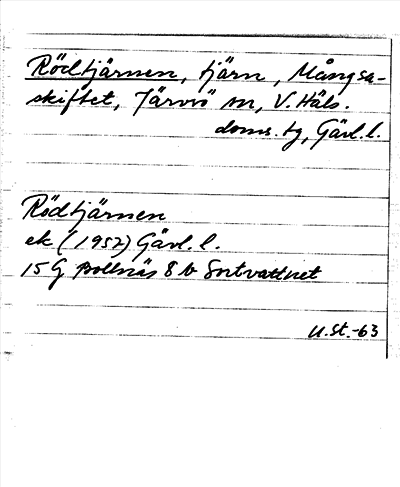 Rödtjärnen, tjärn, Mångsa-
skiftet, Järvsö sn, V. Häls.
doms. tg, Gävl. l.
Rödtjärnen
ek (1957) Gävl. l.
15G Bollnäs 8 b Sortvattnet
U.St.-63